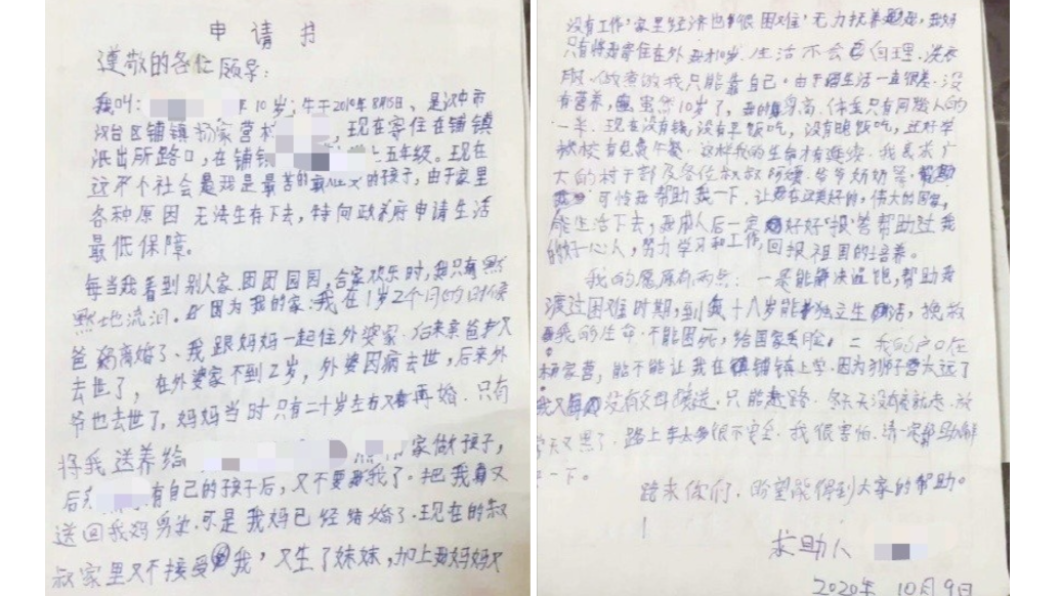 申请书
尊敬的各位领导:
我叫: 年10岁;生于2010年8月5日、是汉中市
汉台区铺镇 家营村 ,现在寄住在铺镇
派出所路口,在铺镇 上五年级。现在
这个社会 我是最苦的 孩子,由于家里
各种原因 无法生存下去,特向政府申请生活
最低保障。
每当我看到别人家团团园园,合家欢乐时,我只有默
默地流泪。因为我的家:我在1岁2个月的时候
爸妈离婚了、我跟妈妈一起住外婆家.后来亲爸爸又
去世了,在外婆家不到2岁,外婆因病去世,后来外
爷也去世了,妈妈当时只有二十岁左右又再婚.只有
将我送养给 家做孩子,
后来 有自己的孩子后,又不要我了。把我又
送回我妈身边.可是我妈已经结婚了.现在的叔
叔家里又不接受我,又生了妹妹,加上我妈妈又
没有工作,家里经济也很困难,无力抚养我,我妈
只有将我寄住在外 我才10岁.生活不会自理.洗衣
服、做煮做我只能靠自己。由于我生活一直很差.没
有营养,虽然10岁了,我的身高、体重只有同龄人的
一半.现在没有钱,没有早饭吃,没有晚饭吃,还好学
校有免费午餐.这样我的生命才有延续.我恳求广
大的村干部及各位叔叔阿姨、爷爷奶奶
可怜我帮助我一下.让我在这美好的,伟大的国家,
能生活下去,我成人后一定好好报答帮助过我
的好心人,努力学习和工作,回报祖国的培养。
我的愿望有两点:一是能解决温饱,帮助我
渡过困难时期,到我十八岁能独立生活,挽救
我的生命.不能困死,给国家丢脸.二 我的户口在
杨家营,能不能让我在铺镇上学.因为狮子营太远了
我又没有父母接送,只能走路.冬天天没亮就走.放
学天又黑了.路上车太多很不安全.我很害怕.请一定帮助解
一下。
跪求你们.盼望能得到大家的帮助。
求助人
2020年10月9日